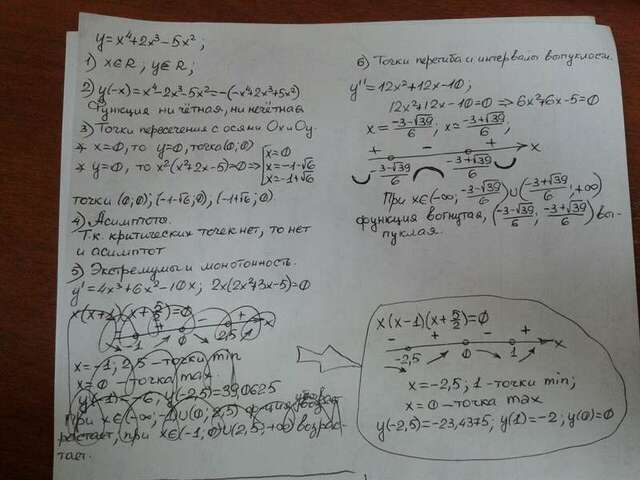 y=x⁴+2x³-5x²;
1) x∈R; y∈R;
2) y(-x)=x⁴-2x³-5x²=-(-x⁴+2x³+5x²)
Функция ни чётная, ни нечётная
3) Точки пересечения с осями Ox и Oy.
* x=0, то y=0, точка (0; 0)
* y=0, то x²(x²+2x-5)=0 => [x=0
x=-1-√6
x=-1+√6
точки (0; 0); (-1-√6; 0); (-1+√6; 0)
4) Асимптота.
Т.к. критических точек нет, то нет
и асимптот
5) Экстремумы и монотонность.
y'=4x³+6x²-10x; 2x(2x²+3x-5)=0
x=-1; 2,5 - точки min
x=0 - точка max
y(-1)=-6; y(-2,5)=39,0625
при x∈(-∞; -1)∪(0; 2,5)
растает, при x∈(-1; 0)∪(2,5; +∞) возрас-
тает.
6) Точки перегиба и интервалы выпуклости.
y''=12x²+12x-10;
12x²+12x-10=0 => 6x²+6x-5=0
x=(-3-√39)/6; x=(-3+√39)/6;
+ - + x
(-3-√39)/6 (-3+√39)/6
При x∈(-∞; (-3-√39)/6)∪((-3+√39)/6; +∞)
функция вогнутая, ((-3-√39)/6; (-3+√39)/6) вы-
пуклая.
x(x-1)(x+5/2)=0
- + - + x
-2,5 0 1
x=-2,5; 1 - точки min;
x=0 - точка max
y(-2,5)=-23,4375; y(1)=-2; y(0)=0